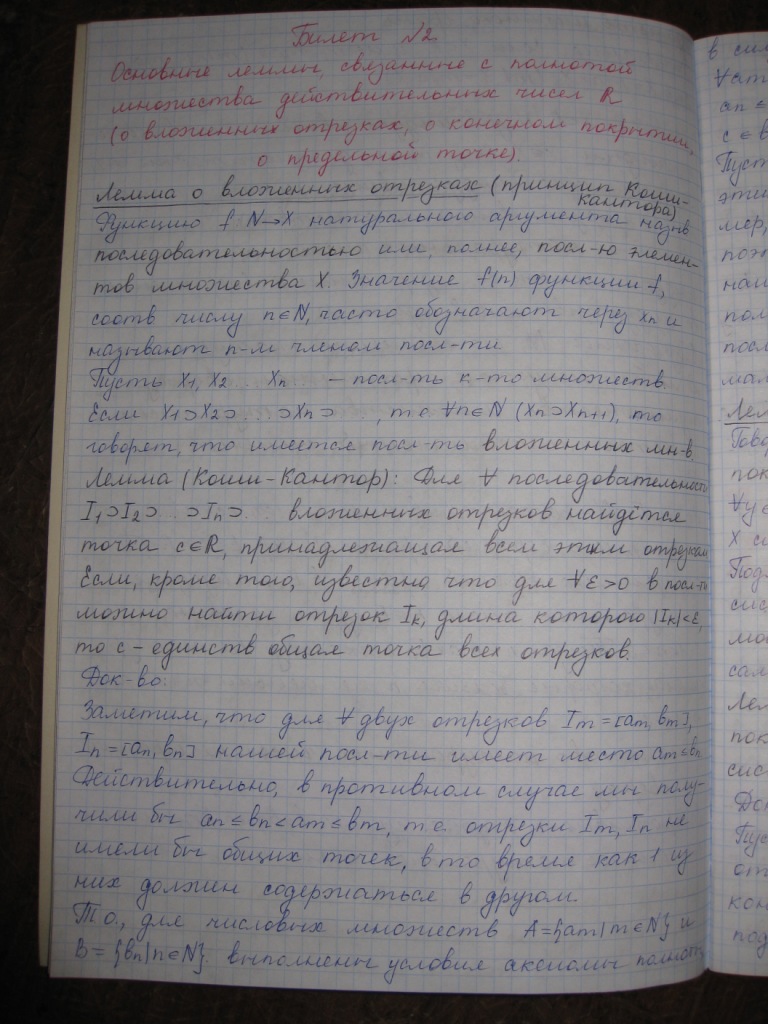 Билет №2
Основные леммы, связанные с полнотой
множества действительных чисел R
(о вложенных отрезках, о конечном покрытии,
о предельной точке).
Лемма о вложенных отрезках (принцип Коши-
Кантора)
Функцию f N→X натурального аргумента назыв
последовательностью или, полнее, посл-ю элемен-
тов множества X. Значение f(n) функции f,
соотв числу n∈N, часто обозначают через xn и
называют n-м членом посл-ти
Пусть X1, X2 ... Xn ... – посл-ть к-то множеств.
Если X1⊃X2⊃ ... ⊃Xn⊃ ..., т.е ∀n∈N (Xn⊃Xn+1), то
говорят, что имеется посл-ть вложенных мн-в.
Лемма (Коши-Кантор): Для ∀ последовательности
I1⊃I2⊃ ... ⊃In⊃ ... вложенных отрезков найдётся
точка c∈R, принадлежащая всем этим отрезкам
Если, кроме того, известно, что для ∀ε>0 в посл-ти
можно найти отрезок Ik, длина которого |Ik|<ε,
то c – единств общая точка всех отрезков.
Док-во:
Заметим, что для ∀ двух отрезков Im=[am, bm],
In=[an, bn] нашей посл-ти имеет место am≤bn
Действительно, в противном случае мы полу-
чили бы an≤bn<am≤bm, т.е. отрезки Im, In не
имели бы общих точек, в то время как 1 из
них должен содержаться в другом.
Т.о., для числовых множеств A={am|m∈N} и
B={bn|n∈N} выполнены условия аксиомы полноты,
в сил
∀am
an ≤
c ∈ в
Пуст
эти
мер,
пол
посл
Лем
Гово
пок
∀y∈
X с
Под
сис
мо
сам
Лем
пок
сис
Док
Пус
от
кон
под